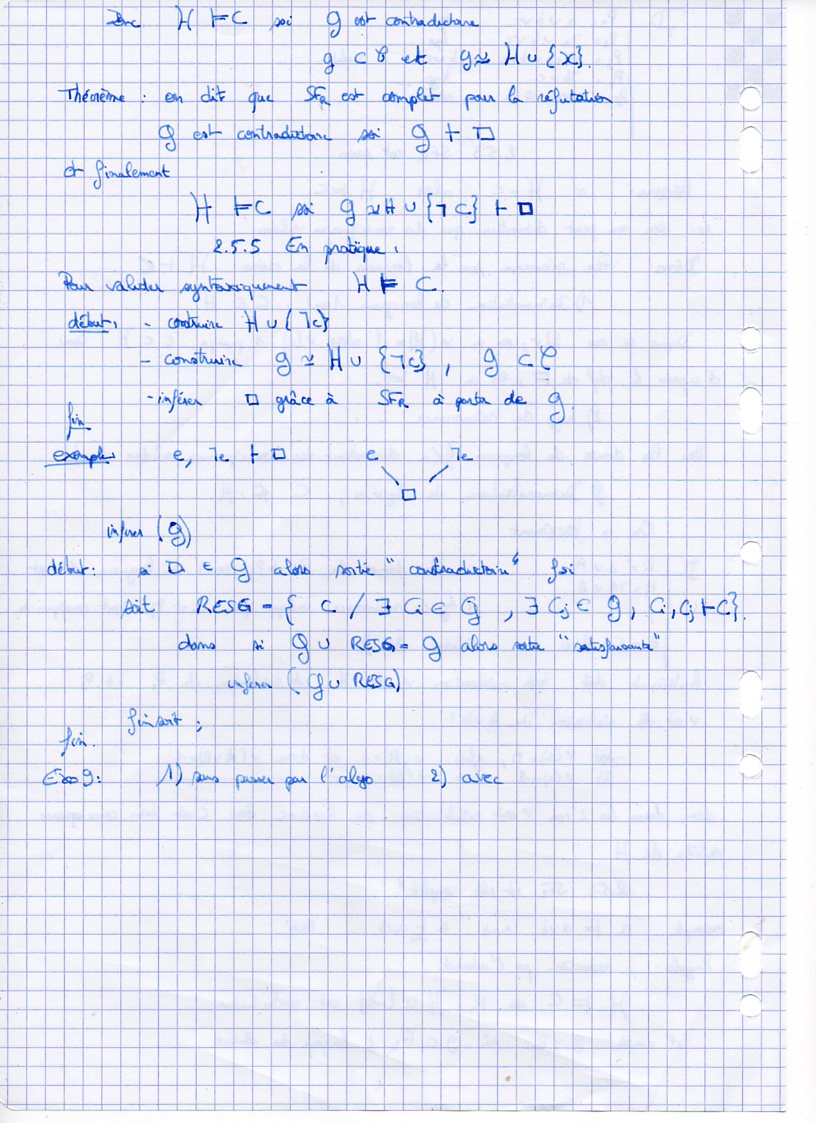 Donc H ⊨ C ssi G est contradictoire
G ⊂ 𝒞 et G ≃ H ∪ {x}.
Théorème : on dit que SFR est complet pour la réfutation
G est contradictoire ssi G ⊢ □
et finalement
H ⊨ C ssi G ≃ H ∪ {¬C} ⊢ □
2.5.5 En pratique :
Pour valider syntaxiquement H ⊨ C.
début : - construire H ∪ {¬C}
- construire G ≃ H ∪ {¬C} , G ⊂ 𝒞
- inférer □ grâce à SFR à partir de G.
fin
exemple e, ¬e ⊢ □ e ¬e
□
inferer (G)
début : si □ ∈ G alors sortie "contradictoire" fsi
soit RESG = { C / ∃ Ci ∈ G , ∃ Cj ∈ G, Ci, Cj ⊢ C}.
dans si G ∪ RESG = G alors sortie "satisfaisante"
inferer (G ∪ RESG)
finsoit ;
fin.
Exo 9 : 1) sans passer par l'algo 2) avec